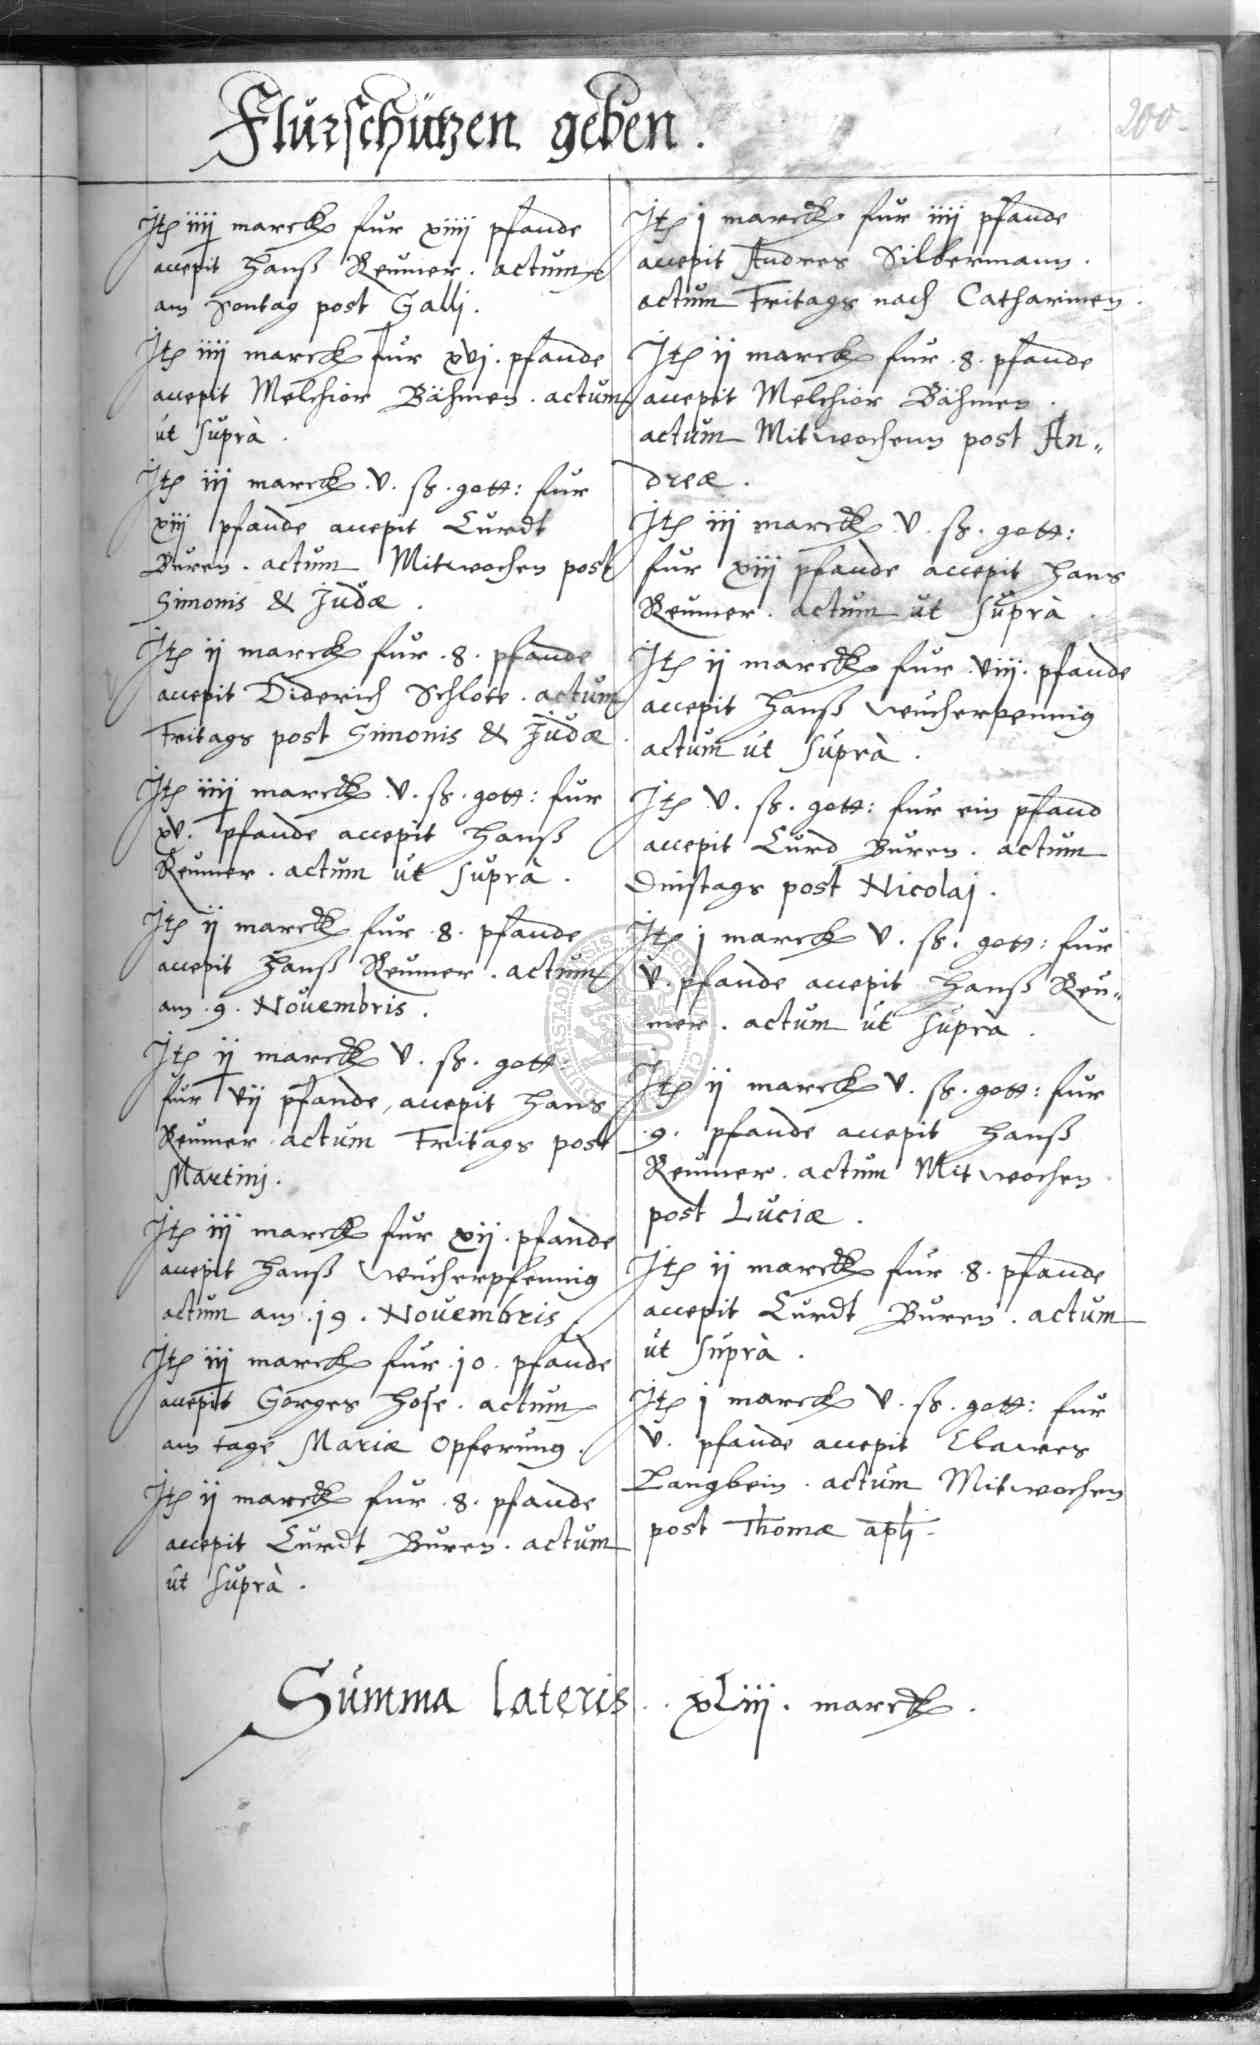 Flurschützen geben.
200.
Jtē iiij marck fur xiiij pfande
accepit Hanß Reumer. actum
am Sontag post Galli.
Jtē iiij marck fur xvj. pfande
accepit Melchior Bähmen. actum
ut suprà.
Jtē iij marck. v. ß. gott: fur
xiij pfande accepit Curdt
Buren. actum Mitwochen post
Simonis & Judæ.
Jtē ij marck fur .8. pfande
accepit Diderich Schlote. actum
Fritags post Simonis & Judæ
Jtē iiij marck v. ß. gott: fur
xv. pfande accepit Hanß
Reumer. actum ut suprà.
Jtē ij marck fur .8. pfande
accepit Hanß Reumer. actum
am .9. Nouembris.
Jtē ij marck v. ß. gott:
fur vij pfande, accepit Hans
Reumer. actum Fritags post
Martinj.
Jtē iij marck fur xij. pfande
accepit Hanß Wucherpfennig
actum am .19. Nouembris
Jtē iij marck fur .10. pfande
accepit Görges Hose. actum
am tage Mariæ Opferung.
Jtē ij marck fur .8. pfande
accepit Curdt Buren. actum
ut suprà.
Jtē j marck fur iiij pfande
accepit Andres Silbermann.
actum Fritags nach Catharinen.
Jtē ij marck fur .8. pfande
accepit Melchior Bähmen.
actum Mitwochenn post An„
dreæ.
Jtē iij marck v. ß. gott:
fur xiij pfande accepit Hans
Reumer. actum ut suprà.
Jtē ij marck fur .viij. pfande
accepit Hanß Wucherpennig
actum ut suprà.
Jtē v. ß. gott: fur ein pfand
accepit Curd Buren. actum
Dinstags post Nicolaj.
Jtē j marck v. ß. gott: fur
v. pfande accepit Hanß Reu„
mer. actum ut suprà.
Jtē ij marck v. ß. gott: fur
.9. pfande accepit Hanß
Reumer. actum Mitwochen
post Luciæ.
Jtē ij marck fur .8. pfande
accepit Curdt Buren. actum
ut suprà.
Jtē j marck v. ß. gott: fur
v. pfande accepit Clawes
Langbein. actum Mitwochen
post Thomæ apli.
Summa lateris . . xLiij. marck.